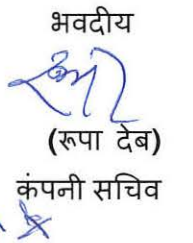 भवदीय
(रूपा देब)
कंपनी सचिव